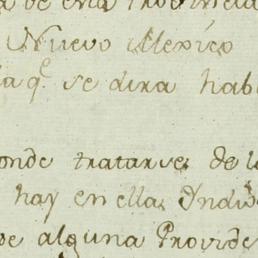 de esta Provincia
Nuevo Mexico
q.e se dira habl
onde tratarse de l
hay en ellas Indi
de alguna Provide